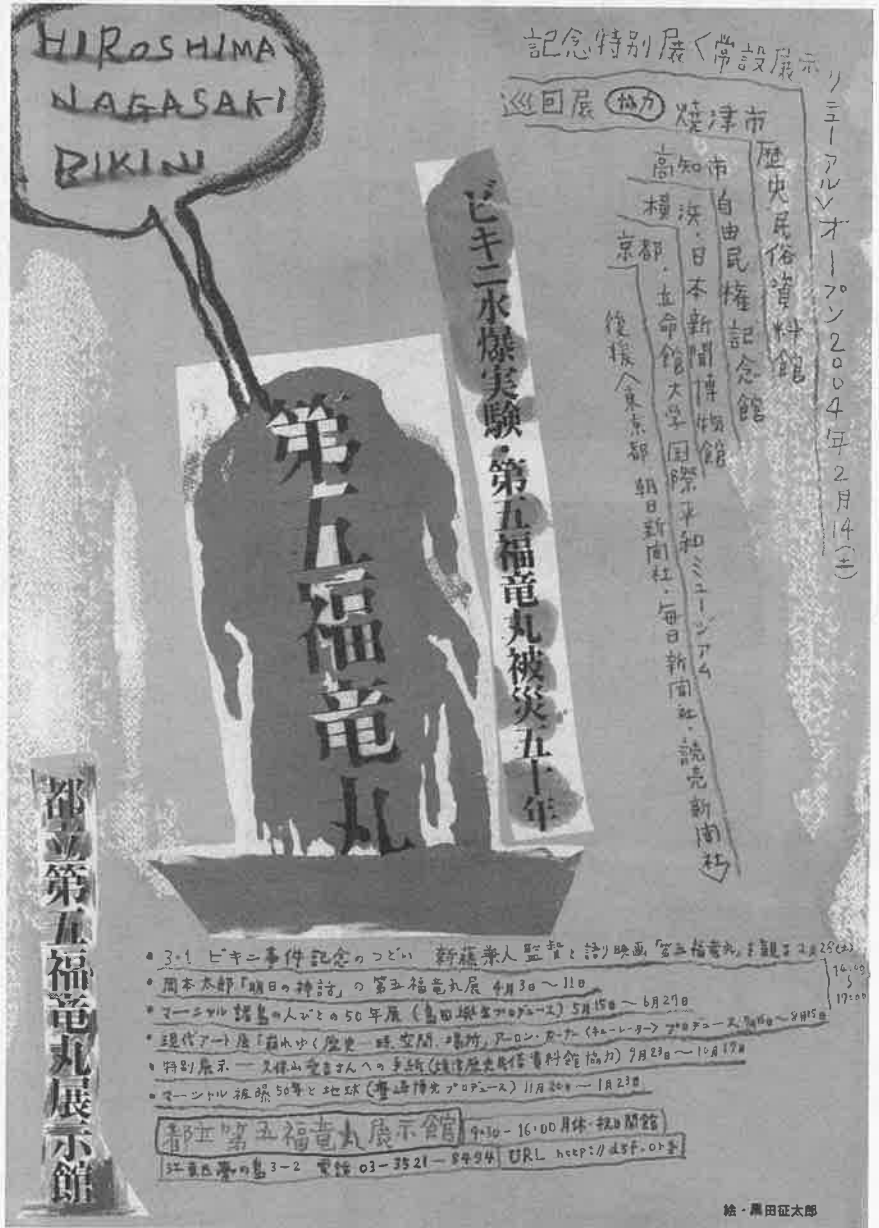 HIROSHIMA
NAGASAKI
BIKINI
記念特別展く常設展示
リニューアルオープン2004年2月14(土)
巡回展 協力 焼津市
歴史民俗資料館
高知市
自由民権記念館
横浜・日本新聞博物館
京都・立命館大学国際平和ミュージアム
後援 東京都 朝日新聞社・毎日新聞社・読売新聞社
ビキニ水爆実験・第五福竜丸被災五十年
第五福竜丸
都立第五福竜丸展示館
• 3・1 ビキニ事件記念のつどい 新藤兼人監督と語り映画「第五福竜丸」を観る 2月28(土)
14:00
〜
17:00
• 岡本太郎「明日の神話」の第五福竜丸展 4月3日〜11日
• マーシャル諸島の人びとの50年展(島田興生プロデュース)5月15日〜6月27日
• 現代アート展「崩れゆく歴史―時、空間、場所」アーロン・カーナー〈キューレーター〉プロデュース 〜8月15日
• 特別展示―久保山愛吉さんへの手紙(焼津歴史民俗資料館協力)9月23日〜10月17日
• マーシャル被曝50年と地球(豊﨑博光プロデュース)11月20日〜1月23日
都立第五福竜丸展示館 9:30-16:00 月休・祝日開館
江東区夢の島3-2 電話 03-3521-8494 URL http://d5f.org
絵・黒田征太郎